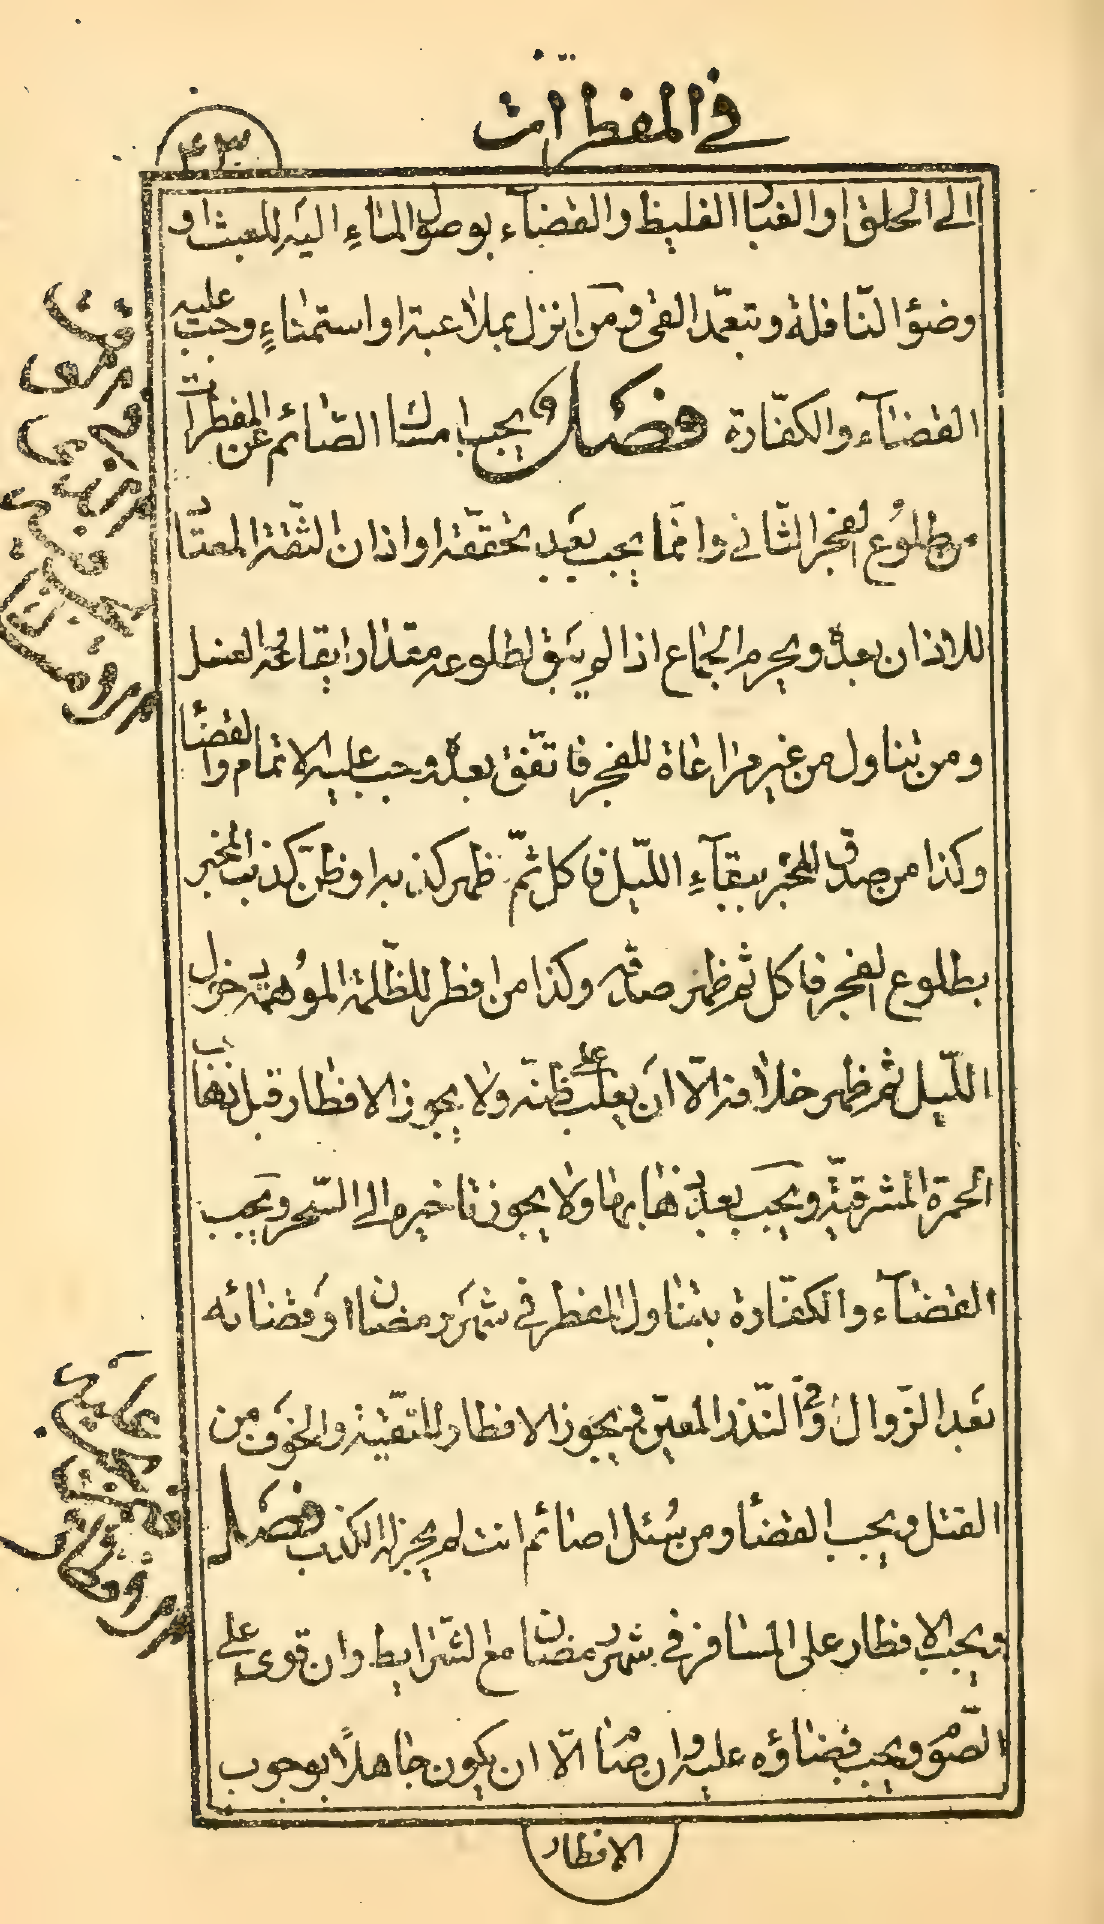 في المفطرات
٤٣
الى الحلق او الغبار الغليظ والقضآء بوصول المآء اليه للعبث او
وضوء النّافلة وبتعمّد القئ ومن انزل بملاعبة او استمناءٍ وجب عليه
القضآء والكفّارة فصل يجب امساك الصّائم عن المفطرات
من طلوع الفجر الثّاني وانّما يجب بعد تحققه او اذان الثّقة المعتاد
للاذان بعده ويحرم الجماع اذا لم يبق لطلوعه مقدار ايقاعه والغسل
ومن تناول من غير مراعاة للفجر فاتّفق بعده وجب عليه الاتمام والقضا
وكذا من صدق المخبر ببقآءِ اللّيل فاكل ثمّ ظهر كذبه او ظن كذب المخبر
بطلوع الفجر فاكل ثم ظهر صدقه وكذا من افطر للظّلمة الموُهمة دخول
اللّيل ثم ظهر خلافه الّا ان يغلب على ظنّه ولا يجوز الافطار قبل ذهاب
الحمرة المشرقيّة ويجب بعد ذهابها ولا يجوز تاخيره الى السّحر ويجب
القضآء والكفّارة بتناول المفطر في شهر رمضان او قضائه
بعد الزّوال وفي النّذر المعيّن ويجوز الافطار للتقيّة والخوف من
القتل ويجب القضأ ومن سُئل اصائم انت لم يجز له الكذب فصل
ويجب الافطار على المسافر في شهر رمضان مع الشّرايط وان قوى على
الصّوم ويجب قضاؤه عليه وان صام الّا ان يكون جاهلاً بوجوب
الافطار